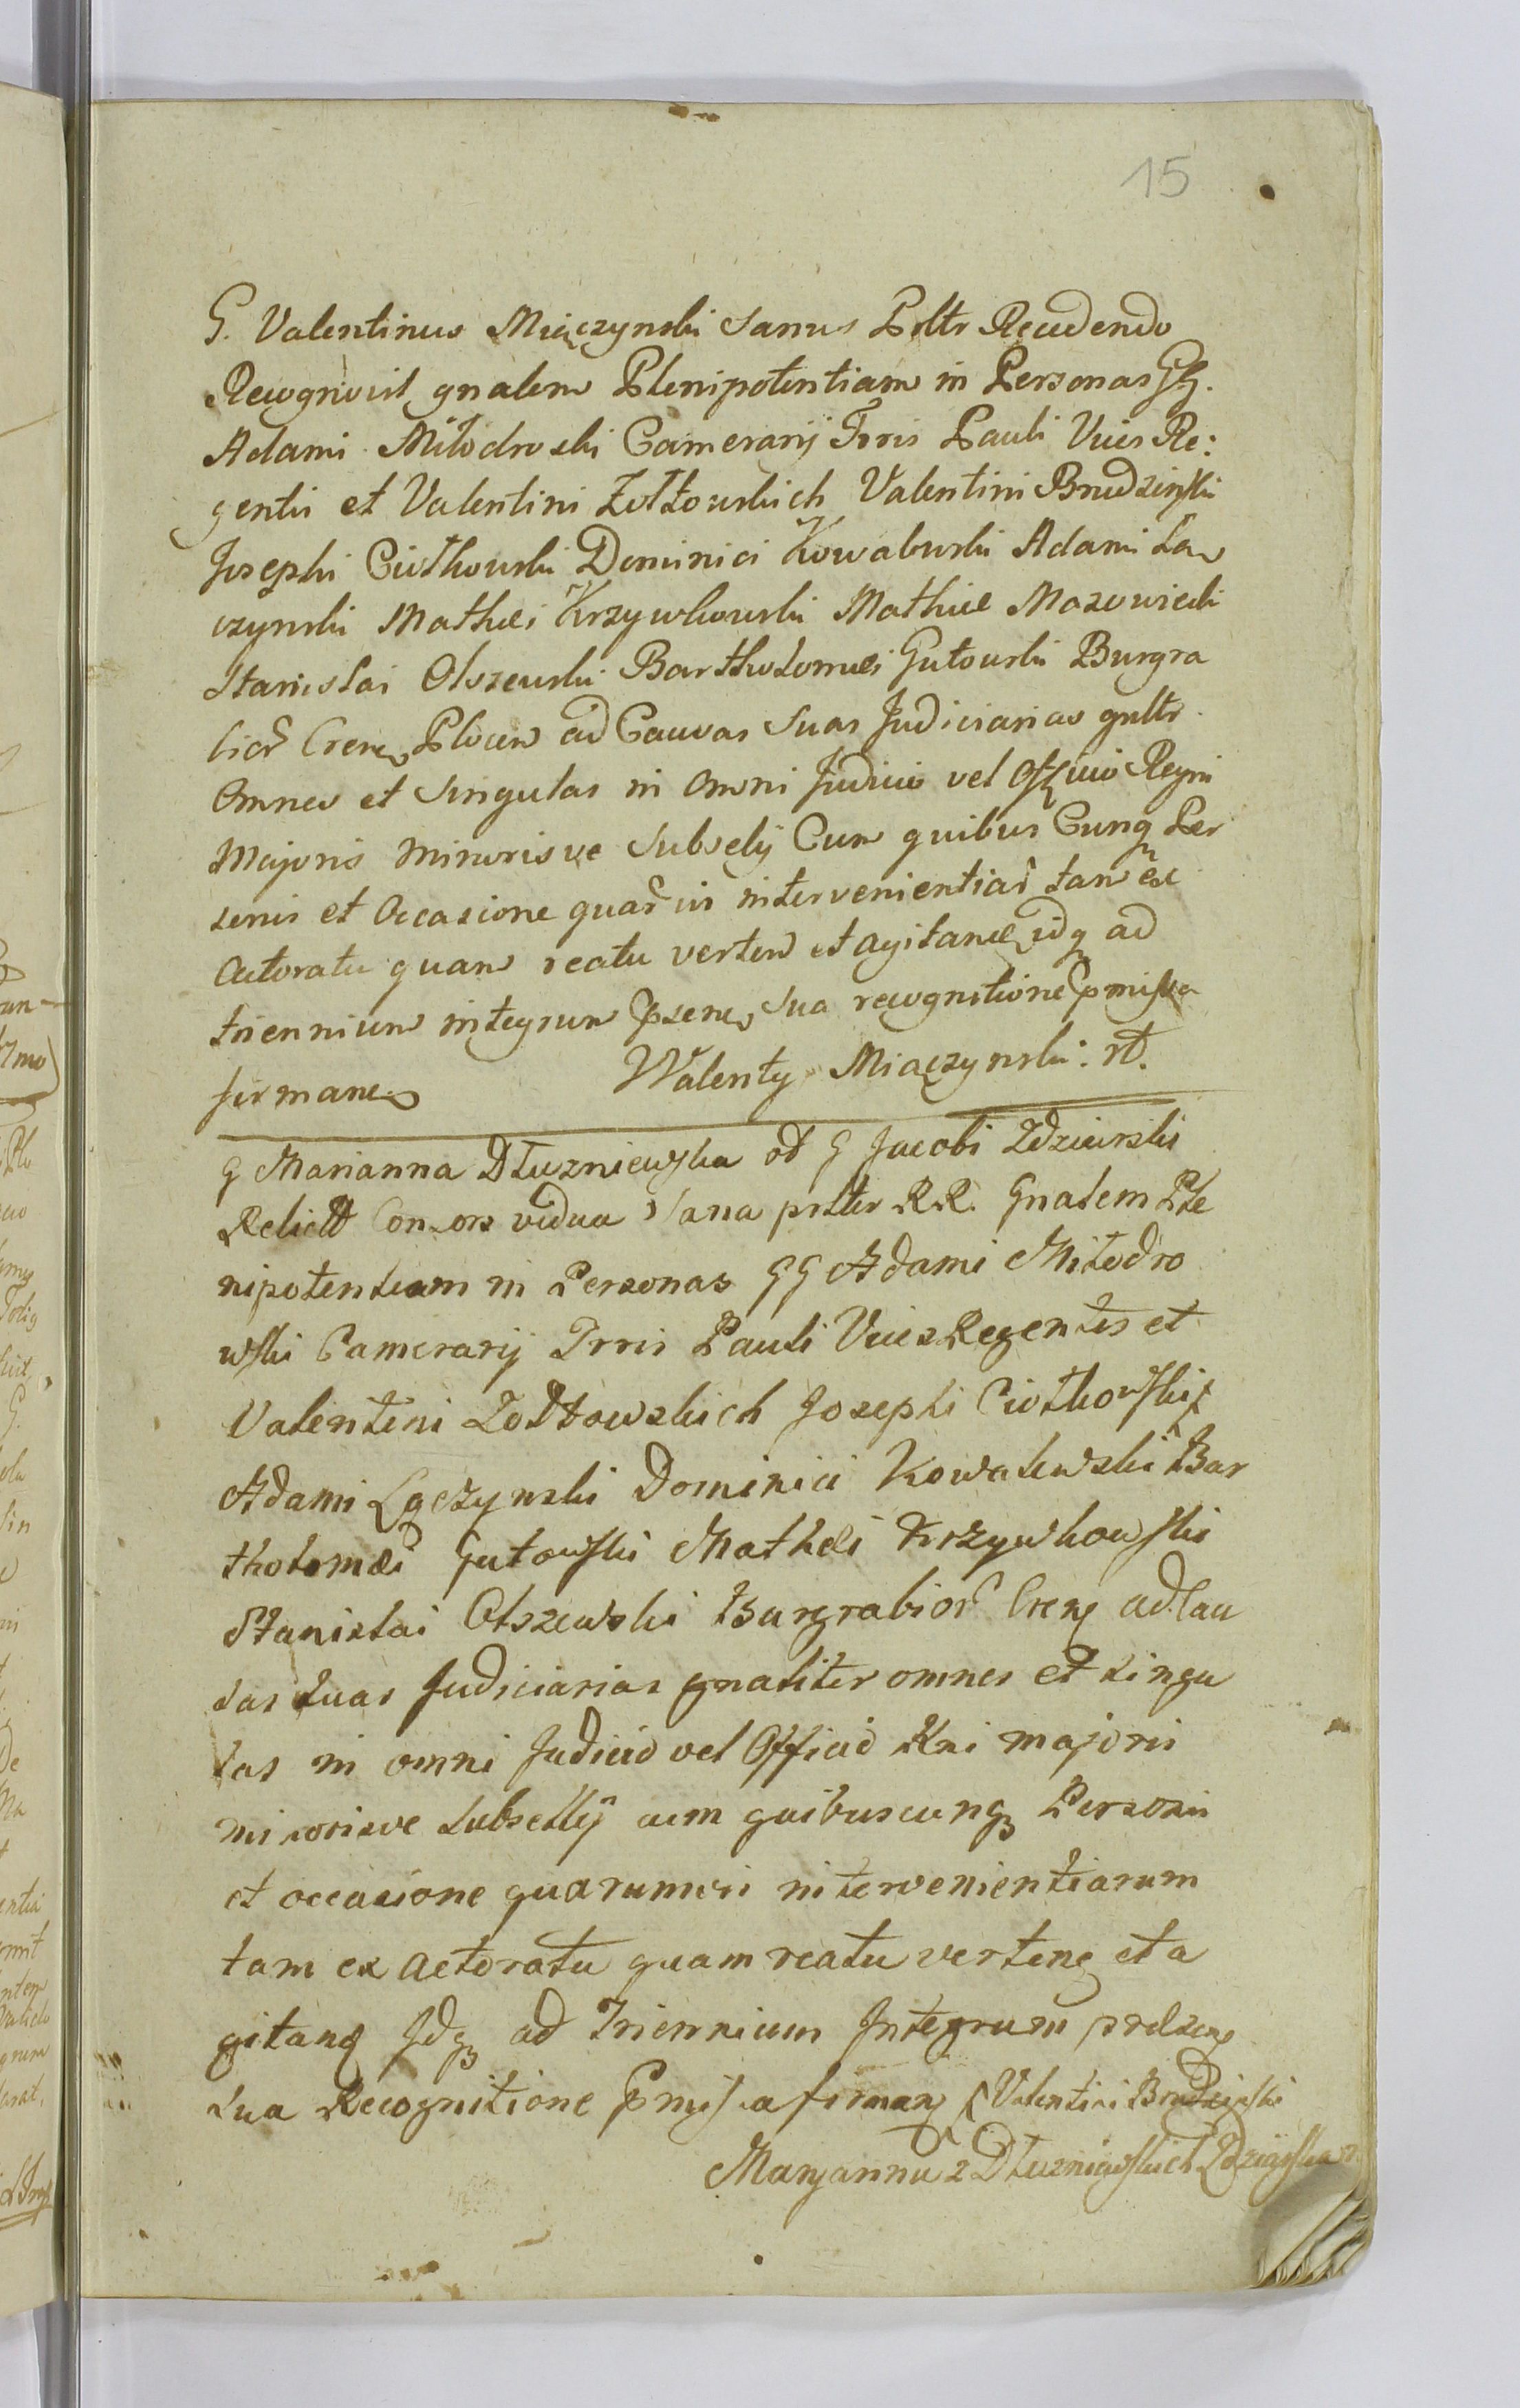 15
G. Valentinus Miączynski Sanus Psltr Recedendo
Recognovit gnalem Plenipotentiam in Personas GG.
Adami Miłodroski Camerarij Trris Pauli Vices Re:
gentis et Valentini Żołtowskich Valentini Brudzinski
Josephi Ciołkowski Dominici Kowalewski Adami Łą
czynski Mathei Krzywkowski Mathiæ Mazowiecki
Stanislai Olszewski Bartholomæi Gutowski Burgra
bior Cren Plocen ad Causas Suas Judiciarias gnltr
Omnes et Singulas in Omni Judicio vel Officio Regni
Majoris Minorisve Subselij Cum quibus Cunq Per
sonis et Occasione quarvis intervenientiar tam ex
Actoratu quam reatu verten et agitan idq ad
triennium integrum Psene Sua recognitione Pmissa
firmane
Walenty Miączynski
G Marianna Dłuzniewska od G Jacobi Zdziarski
Relict Consors vidua Sana psltr RR. Gnalem Ple
nipotentiam in Personas GG Adami Miłodro
wski Camerarij Trris Pauli Vices Regentis et
Valentini Zołtowskich Josephi Ciołkowski
Adami Łączynski Dominici Kowalewski Bar
tholomæi Gutowski Mathei Krzywkowski
Stanislai Olszewski Burgrabior Cren ad Cau
sas suas Judiciarias gnaliter omnes et singu
las in omni Judicio vel Officio Rni majoris
minorisve subsellij cum quibuscunq Personis
et occasione quarumvis intervenientiarum
tam ex actoratu quam reatu verten et a
gitan Idq ad Triennium Integrum
sua Recognitione Pmissa firman Valentini Brudzinski
Maryanna z Dłuzniewskich Zdziarska